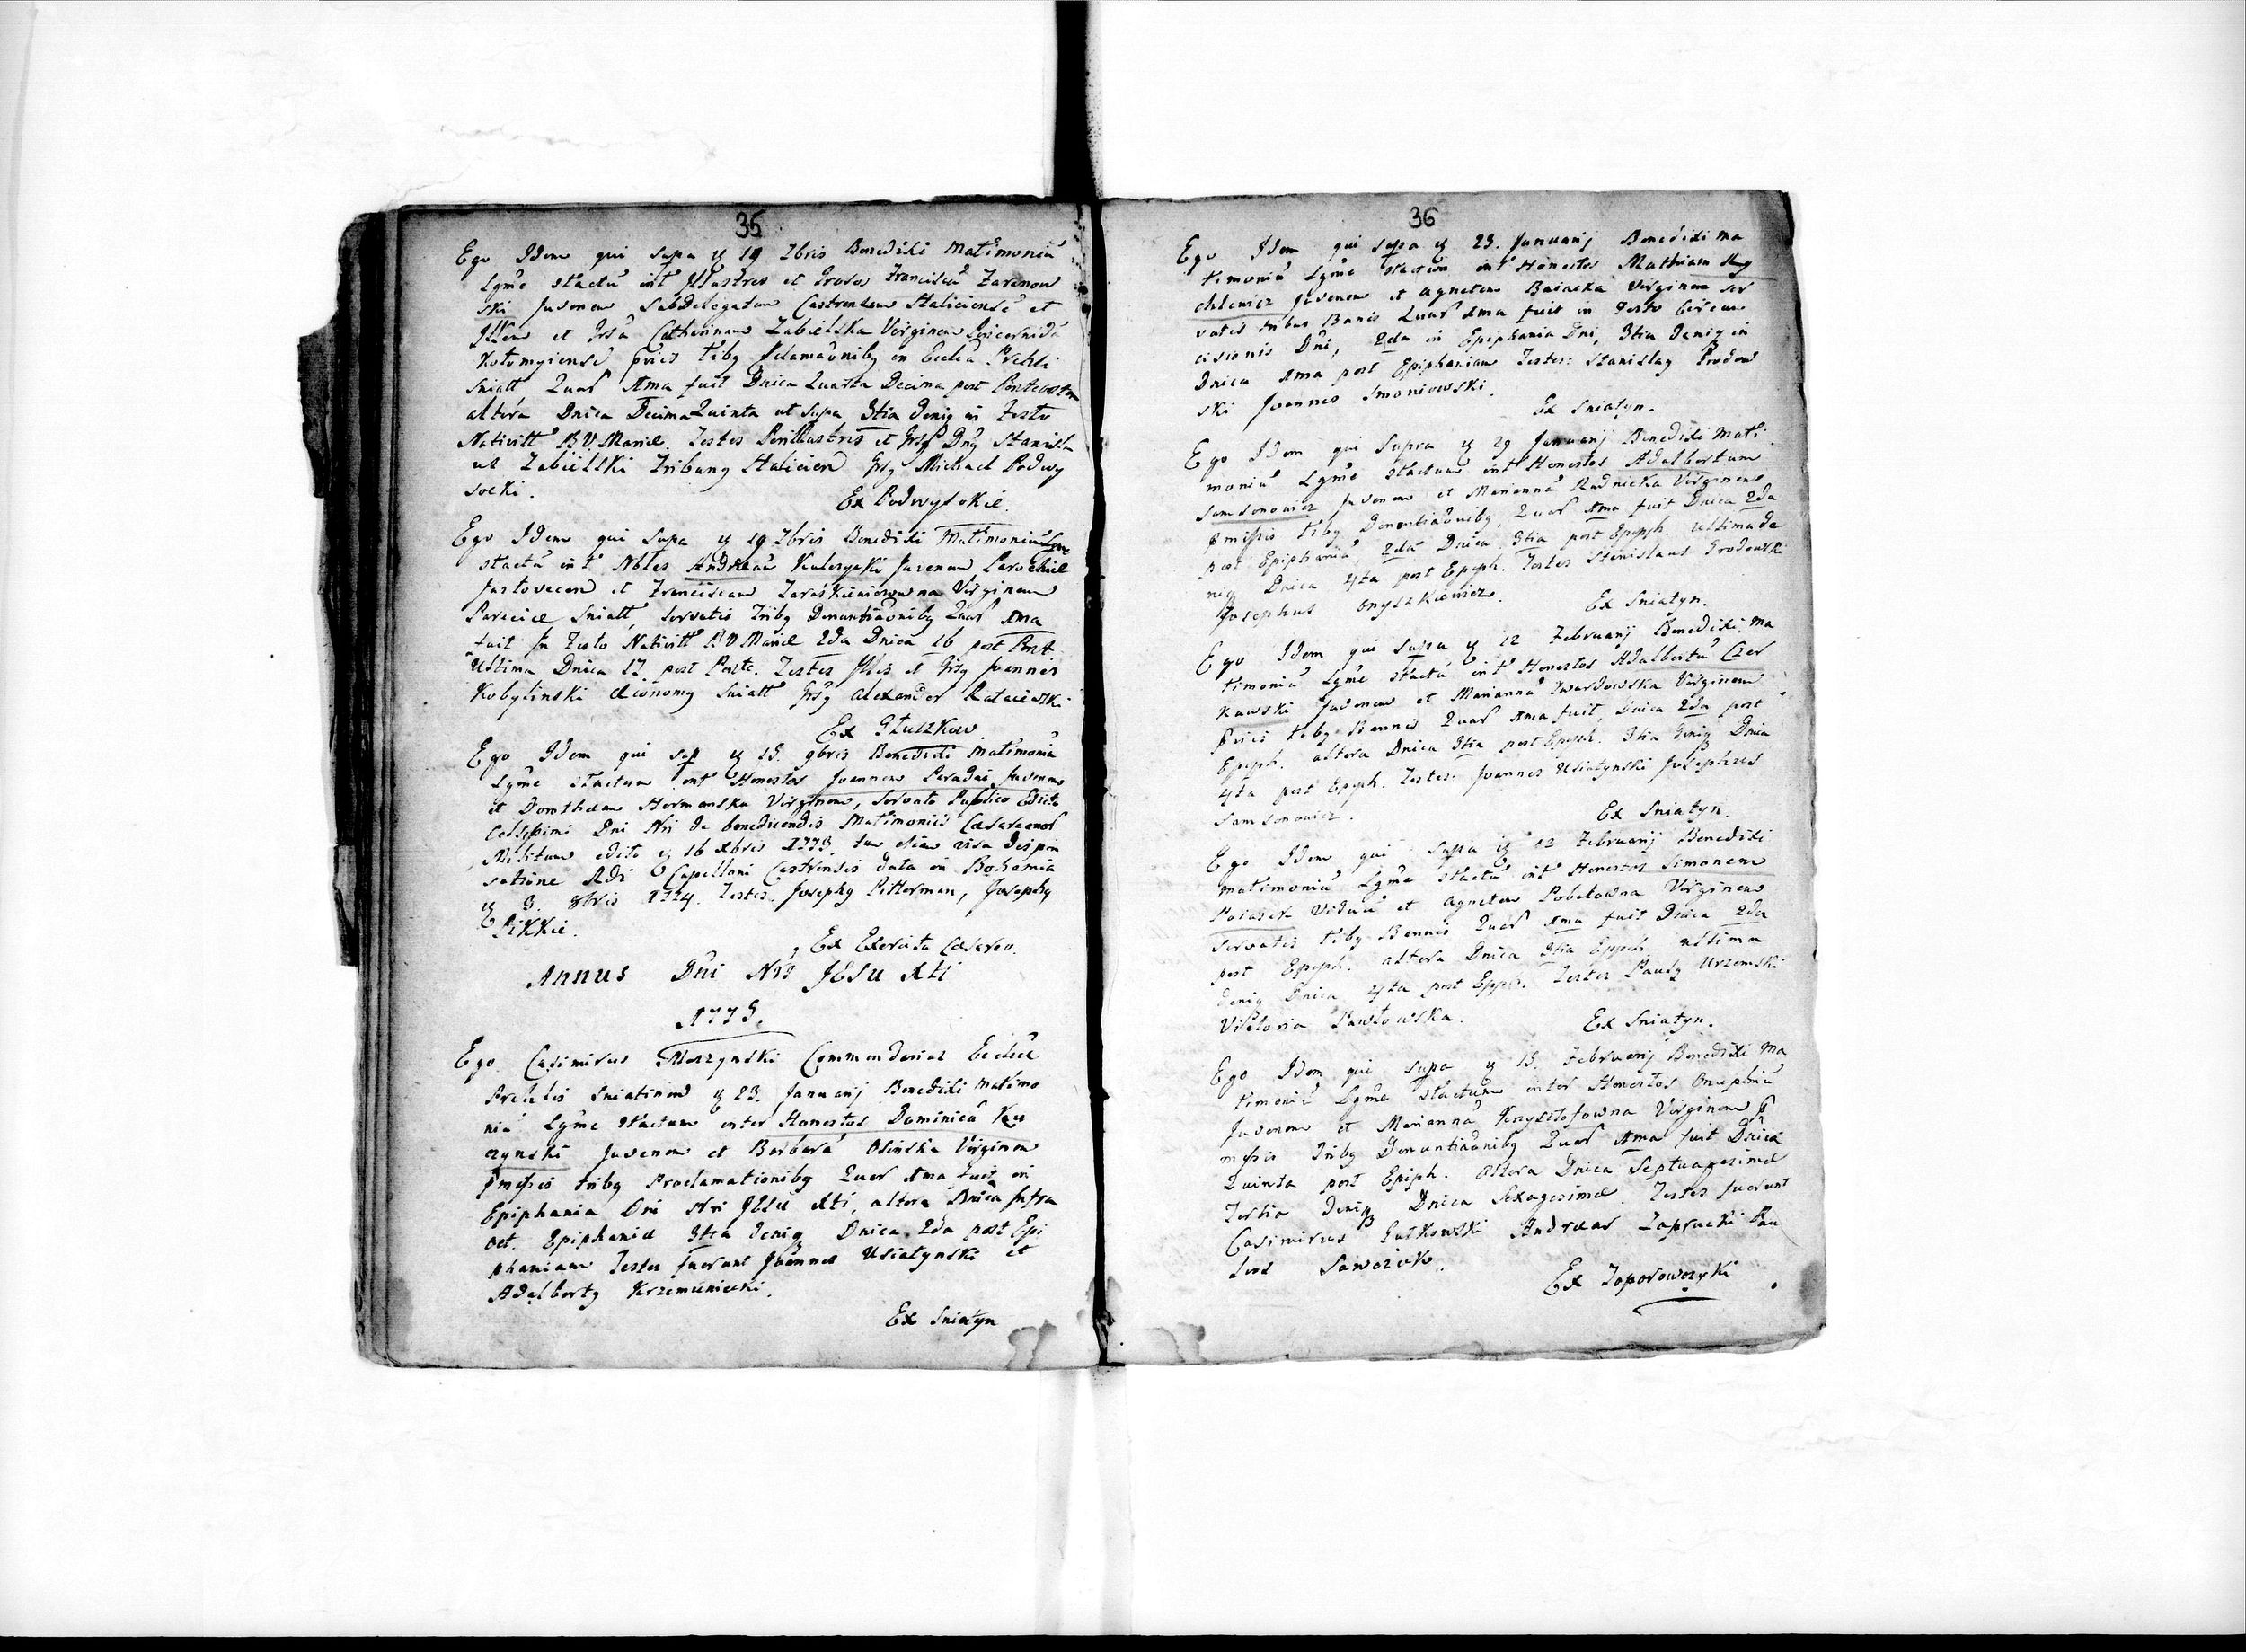 35
Ego Idem qui supa 19 7bris Benedixi Matimoniu
Lgme stactu int Illustres et Grosos Franciscu Zaranow
ski Juvenem Subdelegatum Castrensem Haliciense et
et Grsa Catherinam Zabielska Virginem
Kołomyiense tiby in Eccla
Sniatt Quar 1ma fuit Dnica Quarta Decima post Pentecosten
altera Dnica Decima Quinta ut Supa 3tia deniq in Festo
Nativitt B V Mariæ. Testes Perillustris et Grsg Dng Stanisla
us Zabielski Tribung Halicien Grsg Michael Podwy
socki.
Ex Podwysokie.
Ego Idem qui Supa 19 7bris Benedixi Matimoniu Lgme
stactu int Nbles Andreau Kulczycki Juvenem Parochiæ
Jastovecen et Franciscam Virginem
Paræciæ Sniatt, Servatis Triby Denuntiaõniby Quar 1ma
fuit In Festo Nativitt B V Mariæ 2da Dnica 16 post Pent
Ultima Dnica 17 post Pente. Testes Illris et Grsg Joannes
Kobylinski æconomg Sniatt Grsg Alexander
Ex Głuszkow.
Ego Idem qui sup 15. 9bris Benedixi Matimoniu
Lgme stactum int Honestos Joannem Juvenem
et Dorotheam Hermanska Virginem, Servato Publico Edicto
Celssimi Dni Nri de benedicendis Matimoniis Cæsareonor
Militum edito 16 xbris 1773, tum etiam visa dispon
satione Rdi Capellani Castrensis data in Bohemia
3. 8bris 1774. Testes. Josephg Pitterman, Josephg
Pikkie.
Ex Exercitu Cæsareo.
Annus Dni Nri JESU Xti
1775.
Ego Casimirus Moszynski Commendarius Eccliæ
Prchlis Sniatinen 23. Januarij Benedixi Matimo
niu Lgme stactum inter Honestos Dominicu Ku
czynski Juvenem et Barbara Osinska Virginem
pmissis triby Proclamationiby Quar 1ma fuit in
Epiphania Dni Nri JESU Xti, altera Dnica Infra
oct. Epiphaniæ 3tia deniq Dnica 2da post Epi
phaniam Testes fuerunt Joannes Usiatynski et
Adalbertg Krzemieniecki.
Ex Sniatyn
36
Ego Idem qui supa 23. Januarij Benedixi Ma
timoniu Lgme stactum int Honestos Mathiam
chlewicz Juvenem et Agnetem Baiacka Virginem ser
vatis tribus Banis Quar 1ma fuit in Festo Circum
cisionis Dni, 2da in Epiphania Dni, 3tia deniq in
Dnica 1ma post Epiphaniam Testes: Stanislag Grodow
ski Joannes Smoniowski.
Ex Sniatyn.
Ego Idem qui Supra 29 Januarij Benedixi Mati
moniu Lgme stactum int Honestos Adalbertum
Samsonowicz Juvenem et Marianna Rudnicka Virginem
pmissis tiby Denuntiaõniby, Quar 1ma fuit Dnica 2da
post Epiphania, 2da Dnica 3tia post Epiph. ultima de
niq Dnica 4ta post Epiph. Testes Stanislaus Grodowski
Josephus Onyszkiewicz.
Ex Sniatyn.
Ego Idem qui supa 12 Februarij Benedixi Ma
timoniu Lgme stactu int Honestos Adalbertu Czer
kawski Juvenem et Marianna Twardowska Virginem
tiby Bannis Quar 1ma fuit, Dnica 2da post
Epiph. altera Dnica 3tia post Epiph. 3tia deniq Dnica
4ta post Epiph. Testes. Joannes Usiatynski Josephus
Samsonowicz.
Ex Sniatyn.
Ego Idem qui Supa 12 Februarij Benedixi
Matimoniu Lgme stactu int Honestos Simonem
Viduu et Agnetem Virginem
Servatis tiby Bannis Quar 1ma fuit Dnica 2da
post Epiph. altera Dnica 3tia Epiph. ultima
deniq Dnica 4ta post Epiph. Testes Paulg Urzemski
Victoria Pawłowska.
Ex Sniatyn.
Ego Idem qui supa 15. Februarij Benedixi Ma
timoniu Lgme stactum inter Honestos Onuphriu
Juvenem et Marianna Krzysztofowna Virginem p
missis Triby Denuntiaõniby Quar 1ma fuit Dnica
Quinta post Epiph. Altera Dnica Septuagesimæ
Tertia deniq Dnica Sexagesimæ. Testes fuerunt
Casimirus Gutkowski Andreas Zaprucki Pau
lus Sawczuk.
Ex Toporowczyki